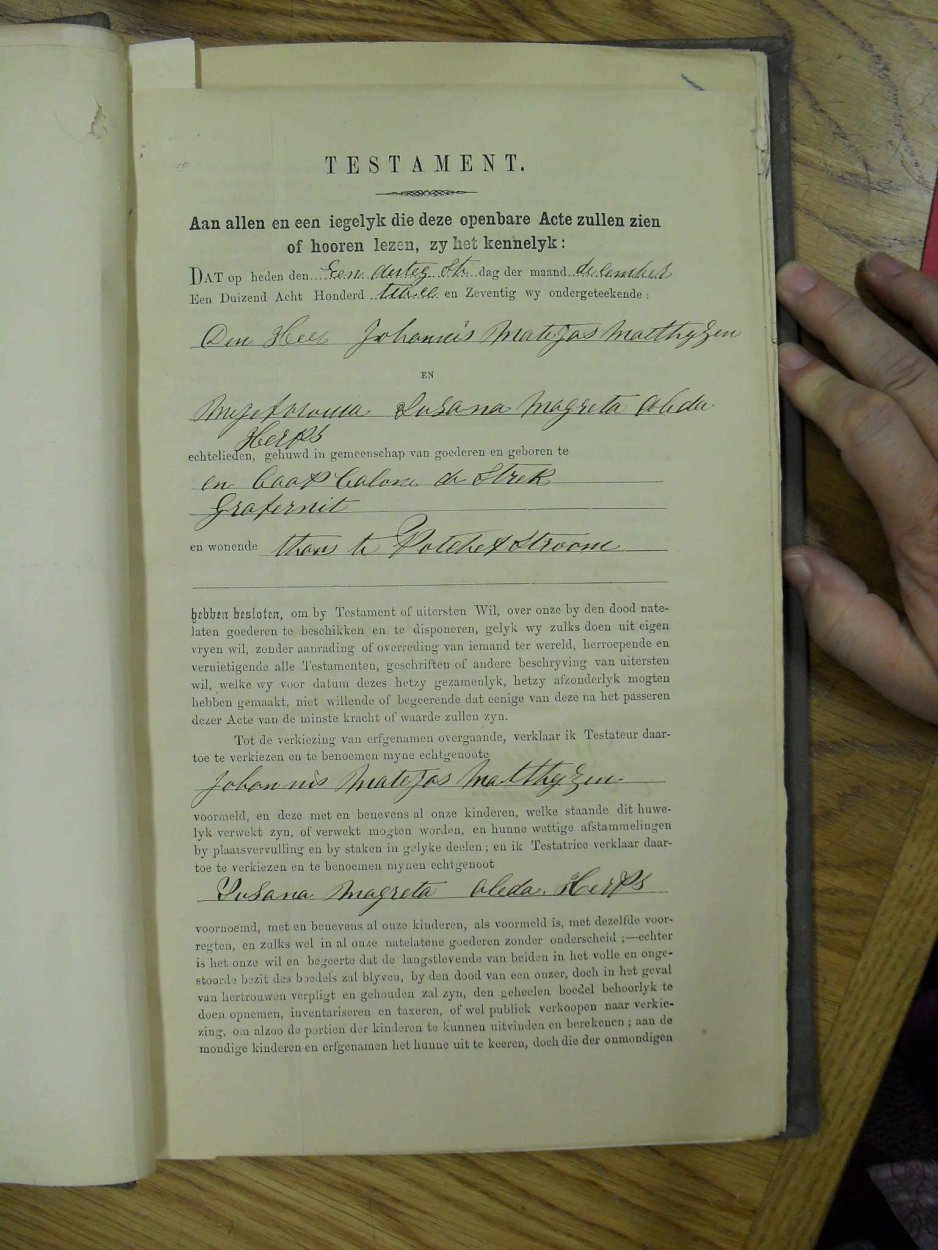 TESTAMENT.
Aan allen en een iegelyk die deze openbare Acte zullen zien
of hooren lezen, zy het kennelyk:
DAT op heden den Een dusteg St dag der maand desember
Een Duizend Acht Honderd twee en Zeventig wy ondergeteekende:
Den Heer Johannis Matejas Matthyzen
EN
Susana Magreta Aleda
Herps
echtelieden, gehuwd in gemeenschap van goederen en geboren te
en Caap Calone de Strek
Grafernit
en wonende thans te Potchefstroom
hebben besloten, om by Testament of uitersten Wil, over onze by den dood nate-
laten goederen te beschikken en te disponeren, gelyk wy zulks doen uit eigen
vryen wil, zonder aanrading of overreding van iemand ter wereld, herroepende en
vernietigende alle Testamenten, geschriften of andere beschryving van uitersten
wil, welke wy voor datum dezes hetzy gezamenlyk, hetzy afzonderlyk mogten
hebben gemaakt, niet willende of begeerende dat eenige van deze na het passeren
dezer Acte van de minste kracht of waarde zullen zyn.
Tot de verkiezing van erfgenamen overgaande, verklaar ik Testateur daar-
toe te verkiezen en te benoemen myne echtgenoote
Johannis Matejas Matthyzen
voormeld, en deze met en benevens al onze kinderen, welke staande dit huwe-
lyk verwekt zyn, of verwekt mogten worden, en hunne wettige afstammelingen
by plaatsvervulling en by staken in gelyke deelen; en ik Testatrice verklaar daar-
toe te verkiezen en te benoemen mynen echtgenoot
Susana Magreta Aleda Herps
voornoemd, met en benevens al onze kinderen, als voormeld is, met dezelfde voor-
regten, en zulks wel in al onze natelatene goederen zonder onderscheid;—echter
is het onze wil en begeerte dat de langstlevende van beiden in het volle en onge-
stoorde bezit des boedels zal blyven, by den dood van een onzer, doch in het geval
van hertrouwen verpligt en gehouden zal zyn, den geheelen boedel behoorlyk te
doen opnemen, inventariseren en taxeren, of wel publiek verkoopen naar verkie-
zing, om alzoo de portien der kinderen te kunnen uitvinden en berekenen; aan de
mondige kinderen en erfgenamen het hunne uit te keeren, doch die der onmondigen